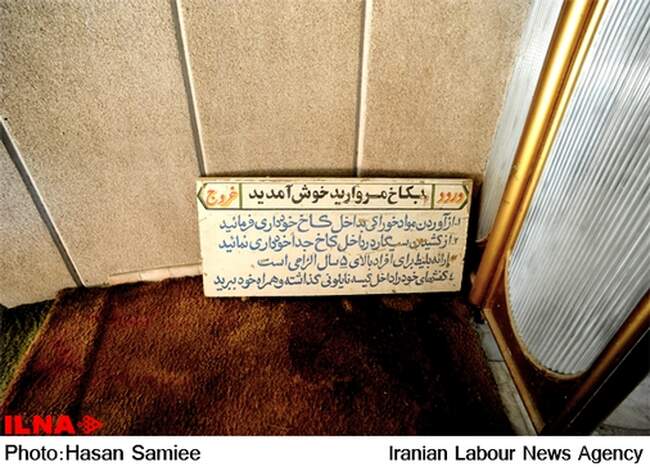 ورود بکاخ مروارید خوش آمدید خروج
۱. از آوردن مواد خوراکی بداخل کاخ خودداری فرمائید
۲. از کشیدن سیگار در داخل کاخ جدا خودداری نمائید
۳. ارائه بلیط برای افراد بالای ۵ سال الزامی است
۴. کفشهای خود را داخل کیسه نایلونی گذاشته و همراه خود ببرید
ILNA
Photo:Hasan Samiee
Iranian Labour News Agency